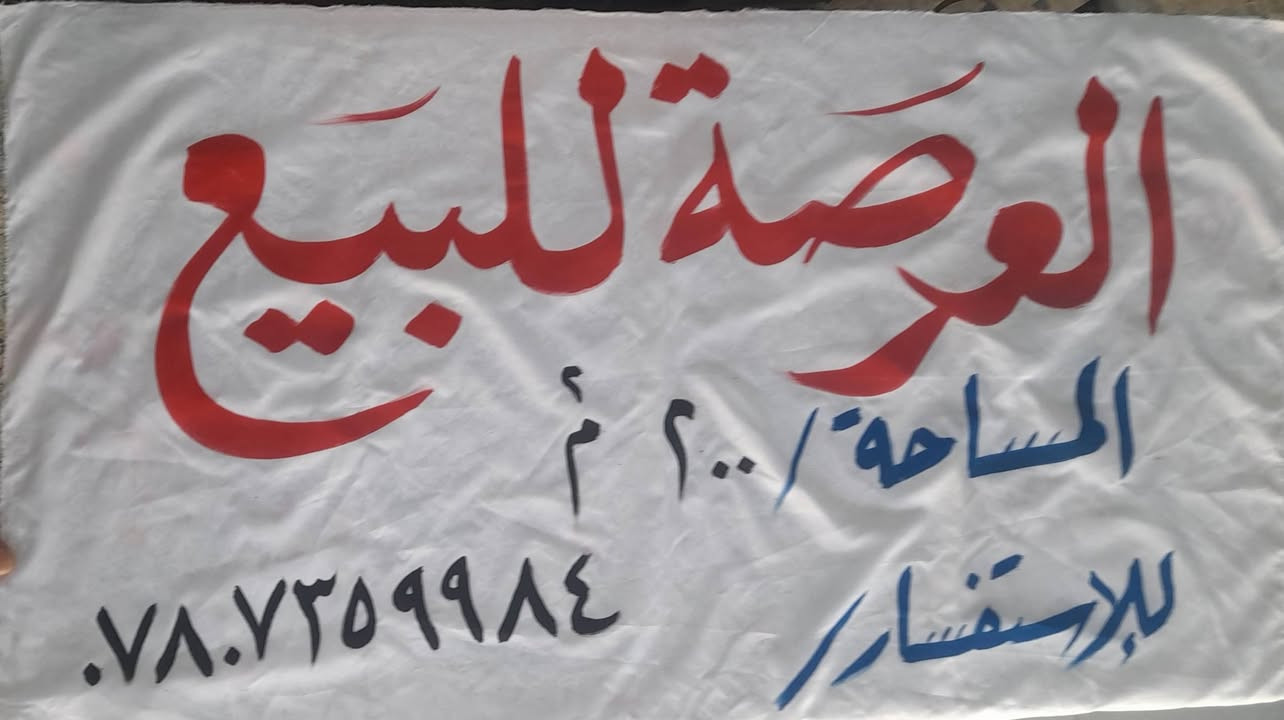 العرصة للبيع
المساحة / ٢٠٠ م٢
للاستفسار / ٠٧٨٠٧٣٥٩٩٨٤